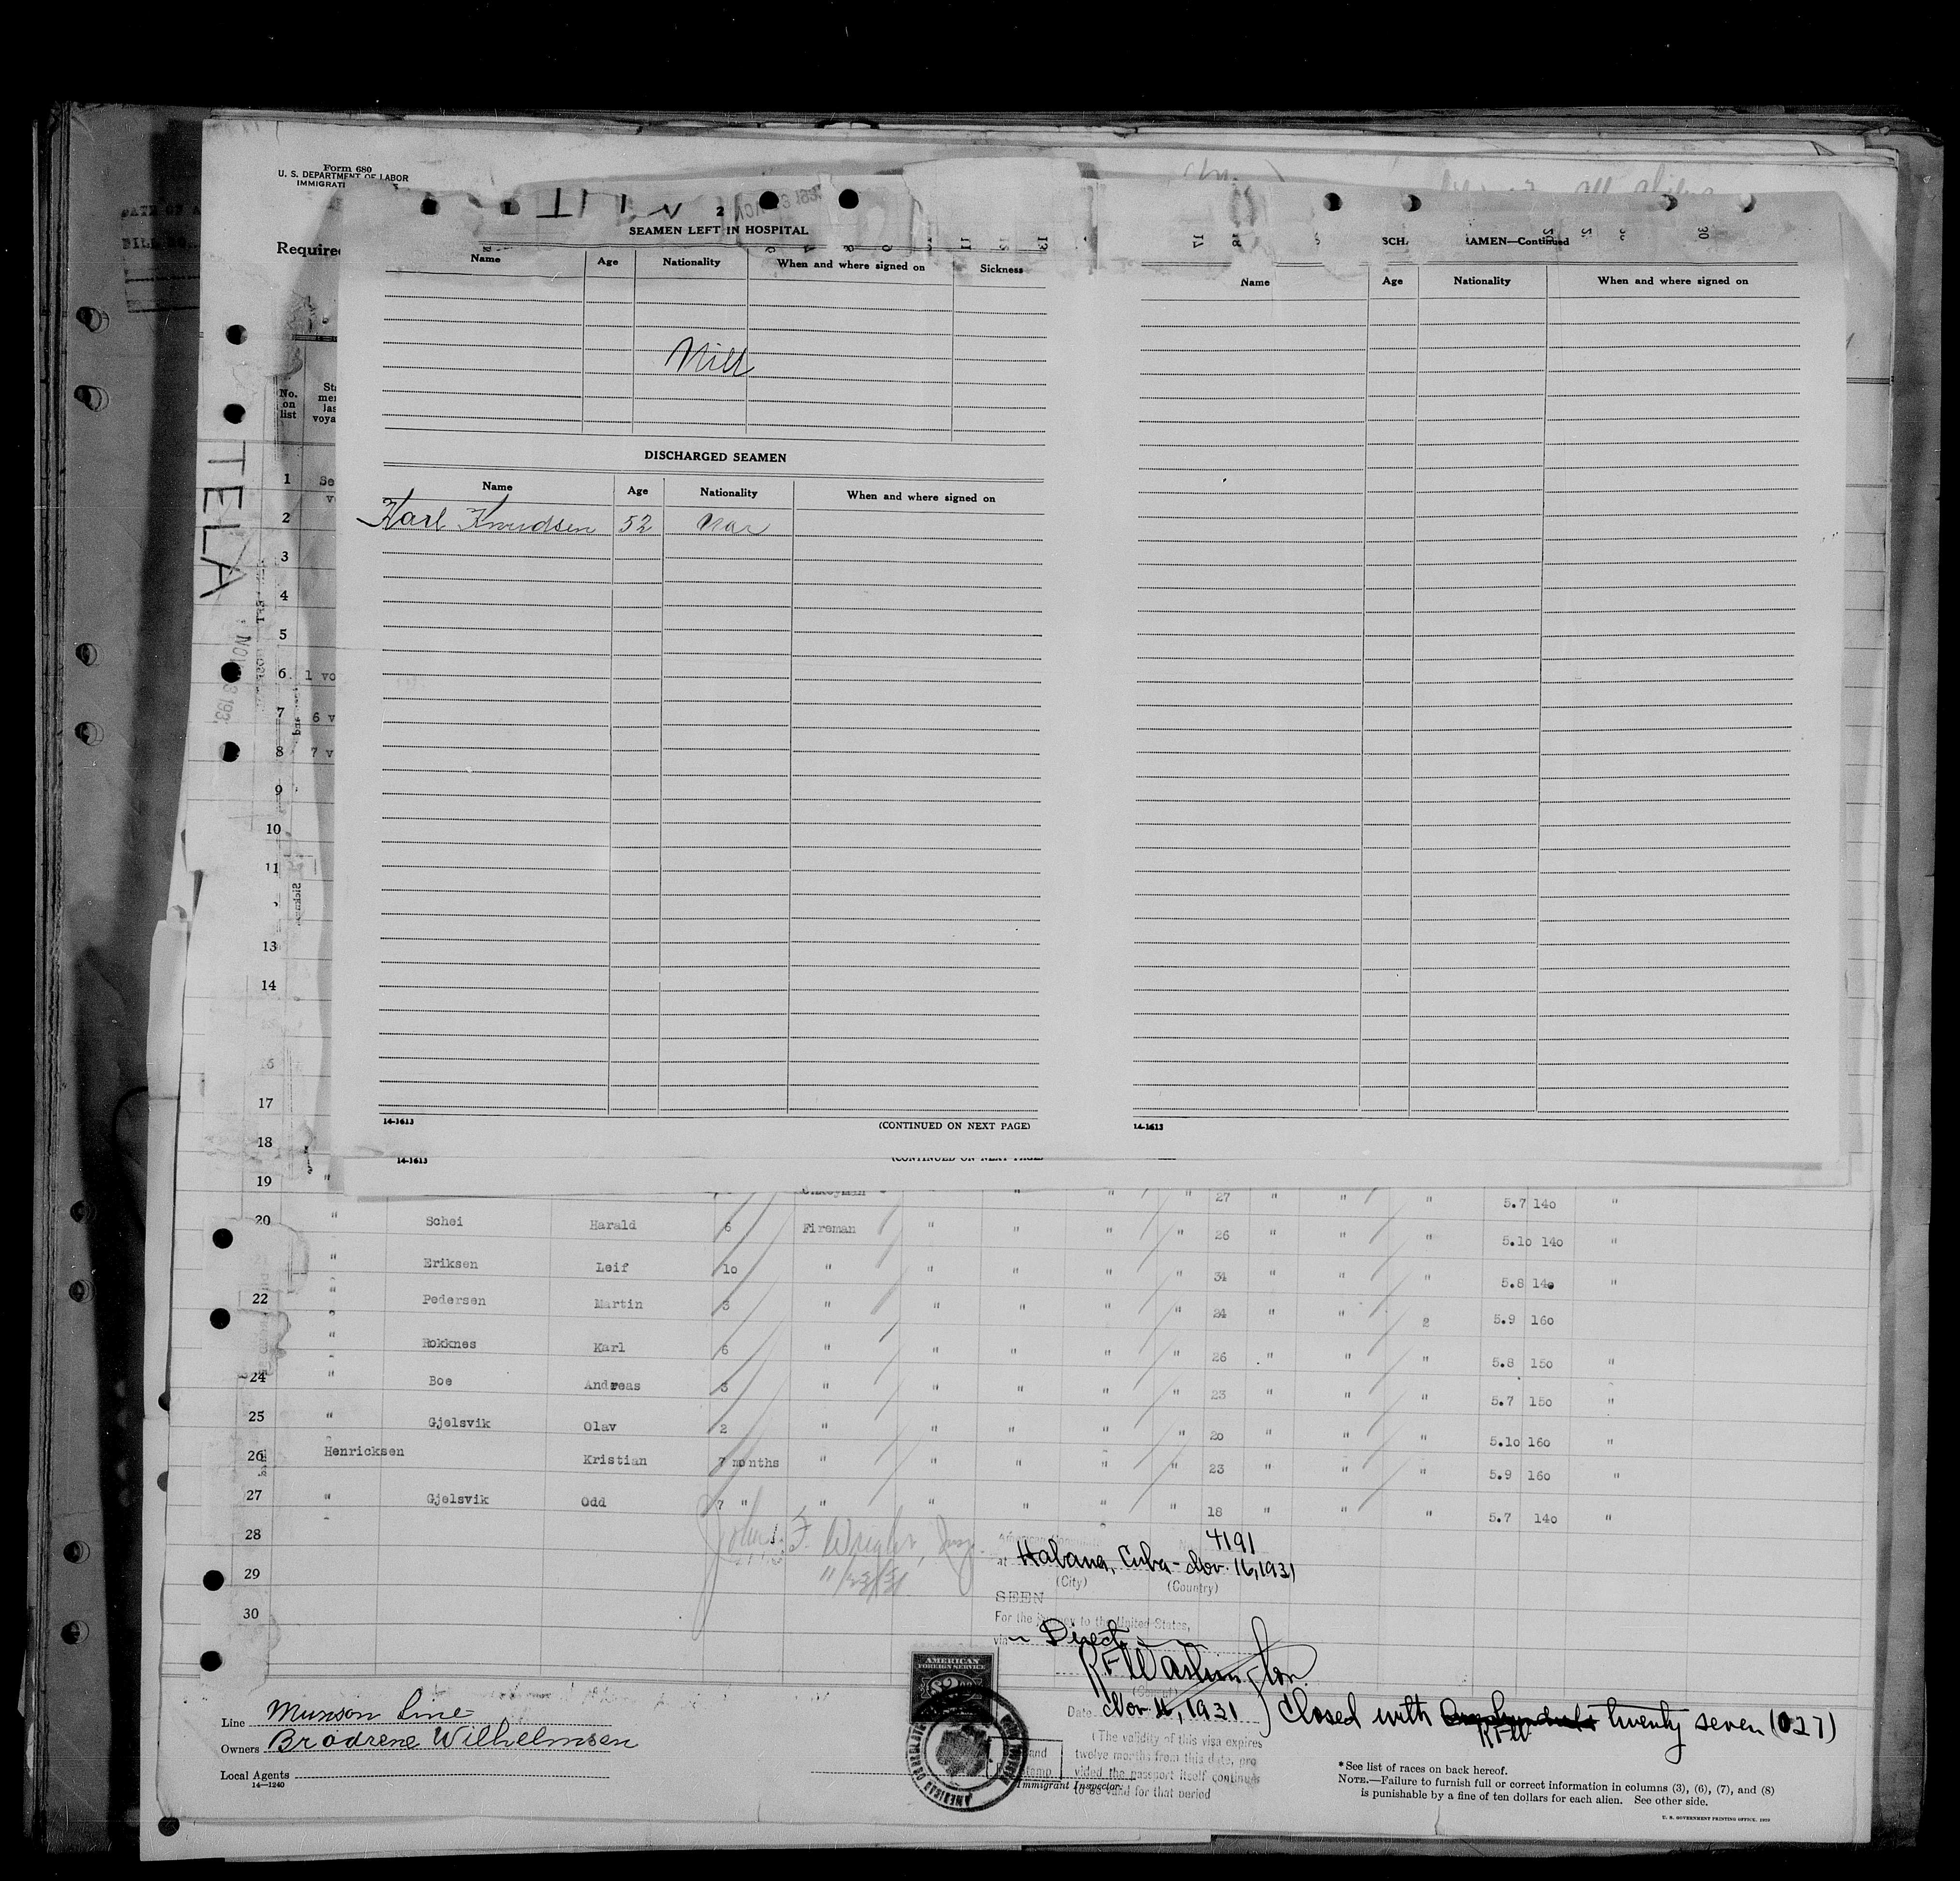 Form 680
U. S. DEPARTMENT OF LABOR
IMMIGRATI
Require
No. on list
TELA
NOV 3 193
2
SEAMEN LEFT IN HOSPITAL
Name Age Nationality When and where signed on Sickness
Nill
DISCHARGED SEAMEN
Name Age Nationality When and where signed on
Karl Knudsen 52 Nor
14-1613 (CONTINUED ON NEXT PAGE)
SCH AMEN—Continued
Name Age Nationality When and where signed on
14-1613
14-1613 (CONTINUED ON NEXT PAGE)
1 Se
2
3
4
5
6 1 vo
7 6 v
8 7 v
9
10
11
13
14
17
18
19 " " " " " 27 " " " 5.7 140 "
20 " Schei Harald 6 Fireman " " " " 26 " " " 5.10 140 "
" Eriksen Leif 10 " " " " " 34 " " " 5.8 140 "
22 " Pedersen Martin 3 " " " " " 24 " " 2 5.9 160
" Rokknes Karl 6 " " " " " 26 " " " 5.8 150 "
24 " Boe Andreas 3 " " " " " 23 " " " 5.7 150 "
25 " Gjelsvik Olav 2 " " " " " 20 " " " 5.10 160 "
26 Henricksen Kristian 7 months " " " " " 23 " " " 5.9 160 "
27 " Gjelsvik Odd 7 " " " " " " 18 " " " 5.7 140 "
28
29
30
John F. Wright, Insp.
4191
at Habana, Cuba - Nov. 16, 1931
(City) (Country)
SEEN
For the journey to the United States,
via Direct
R F Washington
Date Nov 16, 1931 ) Closed with twenty seven (027)
RFW
(The validity of this visa expires
twelve months from this date, pro
vided the passport itself continues
to be valid for that period
AMERICAN
FOREIGN SERVICE
Immigrant Inspector.
Line Munson Line
Owners Brodrene Wilhelmsen
Local Agents
14—1240
*See list of races on back hereof.
NOTE.—Failure to furnish full or correct information in columns (3), (6), (7), and (8)
is punishable by a fine of ten dollars for each alien. See other side.
U. S. GOVERNMENT PRINTING OFFICE